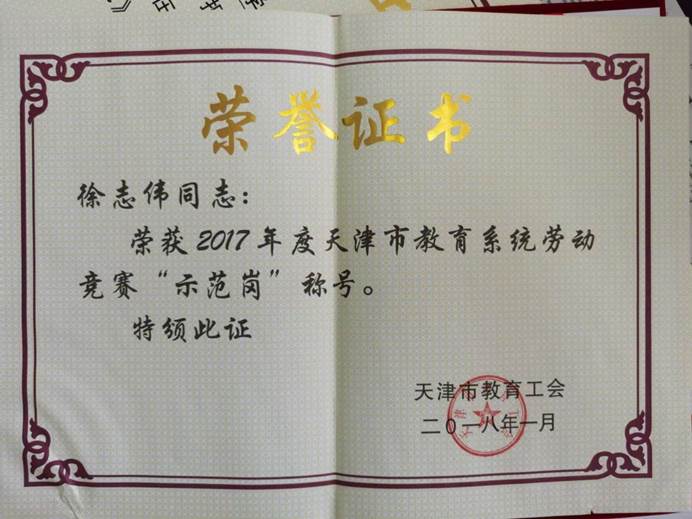 荣誉证书
徐志伟同志：
荣获2017年度天津市教育系统劳动
竞赛“示范岗”称号。
特颁此证
天津市教育工会
二〇一八年一月